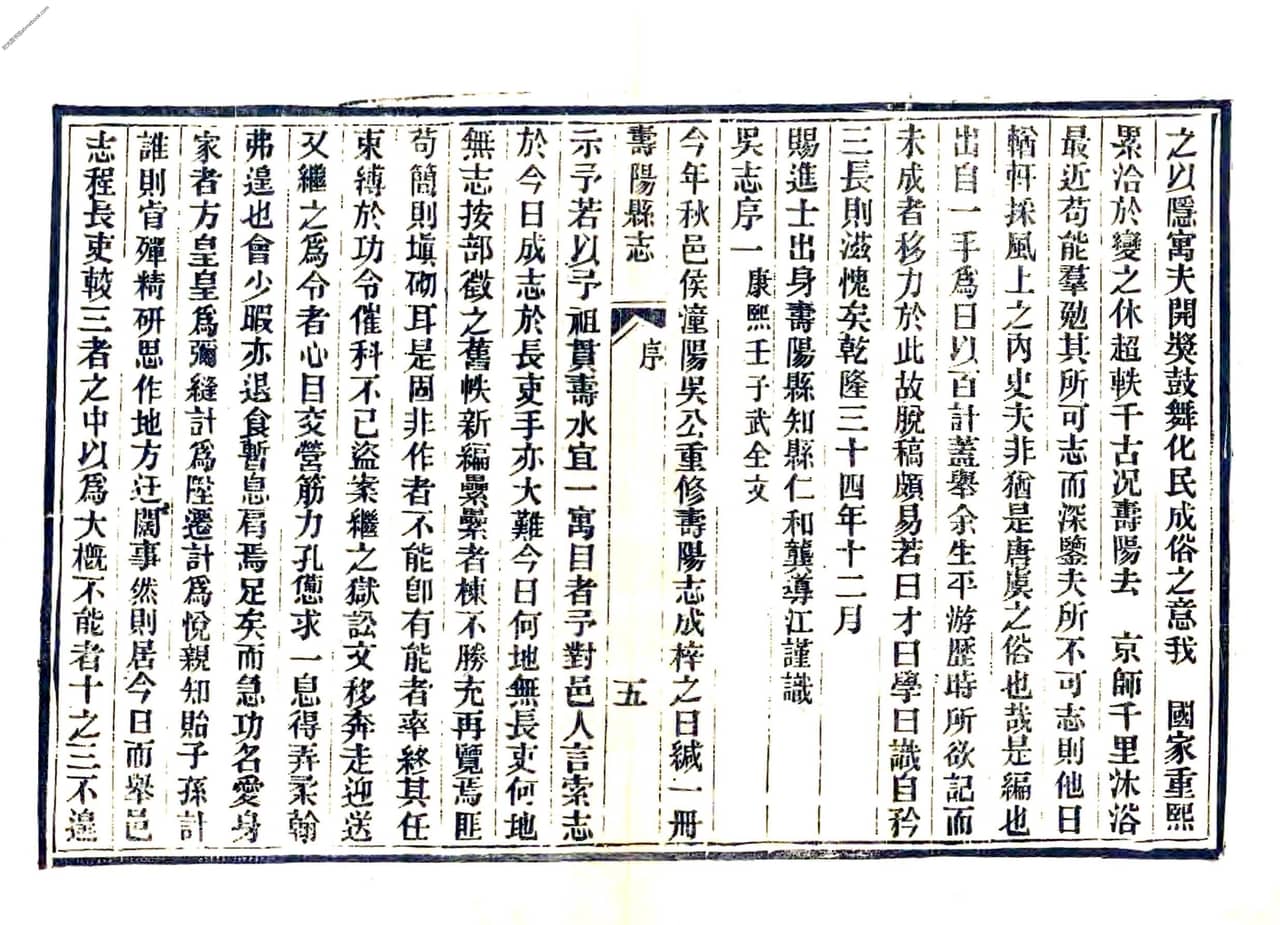 之以隱寓夫開獎鼓舞化民成俗之意我　國家重熙
累洽於變之休超軼千古况壽陽去　京師千里沐浴
最近苟能羣勉其所可志而深鑒夫所不可志則他日
輶軒採風上之內史夫非猶是唐虞之俗也哉是編也
出自一手爲日以百計蓋舉余生平游歷時所欲記而
未成者移力於此故脫稿頗易若曰才曰學曰識自矜
三長則滋愧矣乾隆三十四年十二月
賜進士出身壽陽縣知縣仁和龔導江謹識
吳志序一　康熙壬子武全文
今年秋邑侯潼陽吳公重修壽陽志成梓之日緘一冊
壽陽縣志　序　五
示予若以予祖貫壽水宜一寓目者予對邑人言索志
於今日成志於長吏手亦大難今日何地無長吏何地
無志按部徵之舊帙新編纍纍者棟不勝充再覽焉匪
苟簡則塡砌耳是固非作者不能卽有能者率終其任
束縛於功令催科不已盜案繼之獄訟文移奔走迎送
又繼之爲令者心目交營筋力孔憊求一息得弄柔翰
弗遑也會少暇亦退食暫息肩焉足矣而急功名愛身
家者方皇皇爲彌縫計爲陞遷計爲悅親知貽子孫計
誰則肯殫精研思作地方迂闊事然則居今日而舉邑
志程長吏較三者之中以爲大概不能者十之三不遑